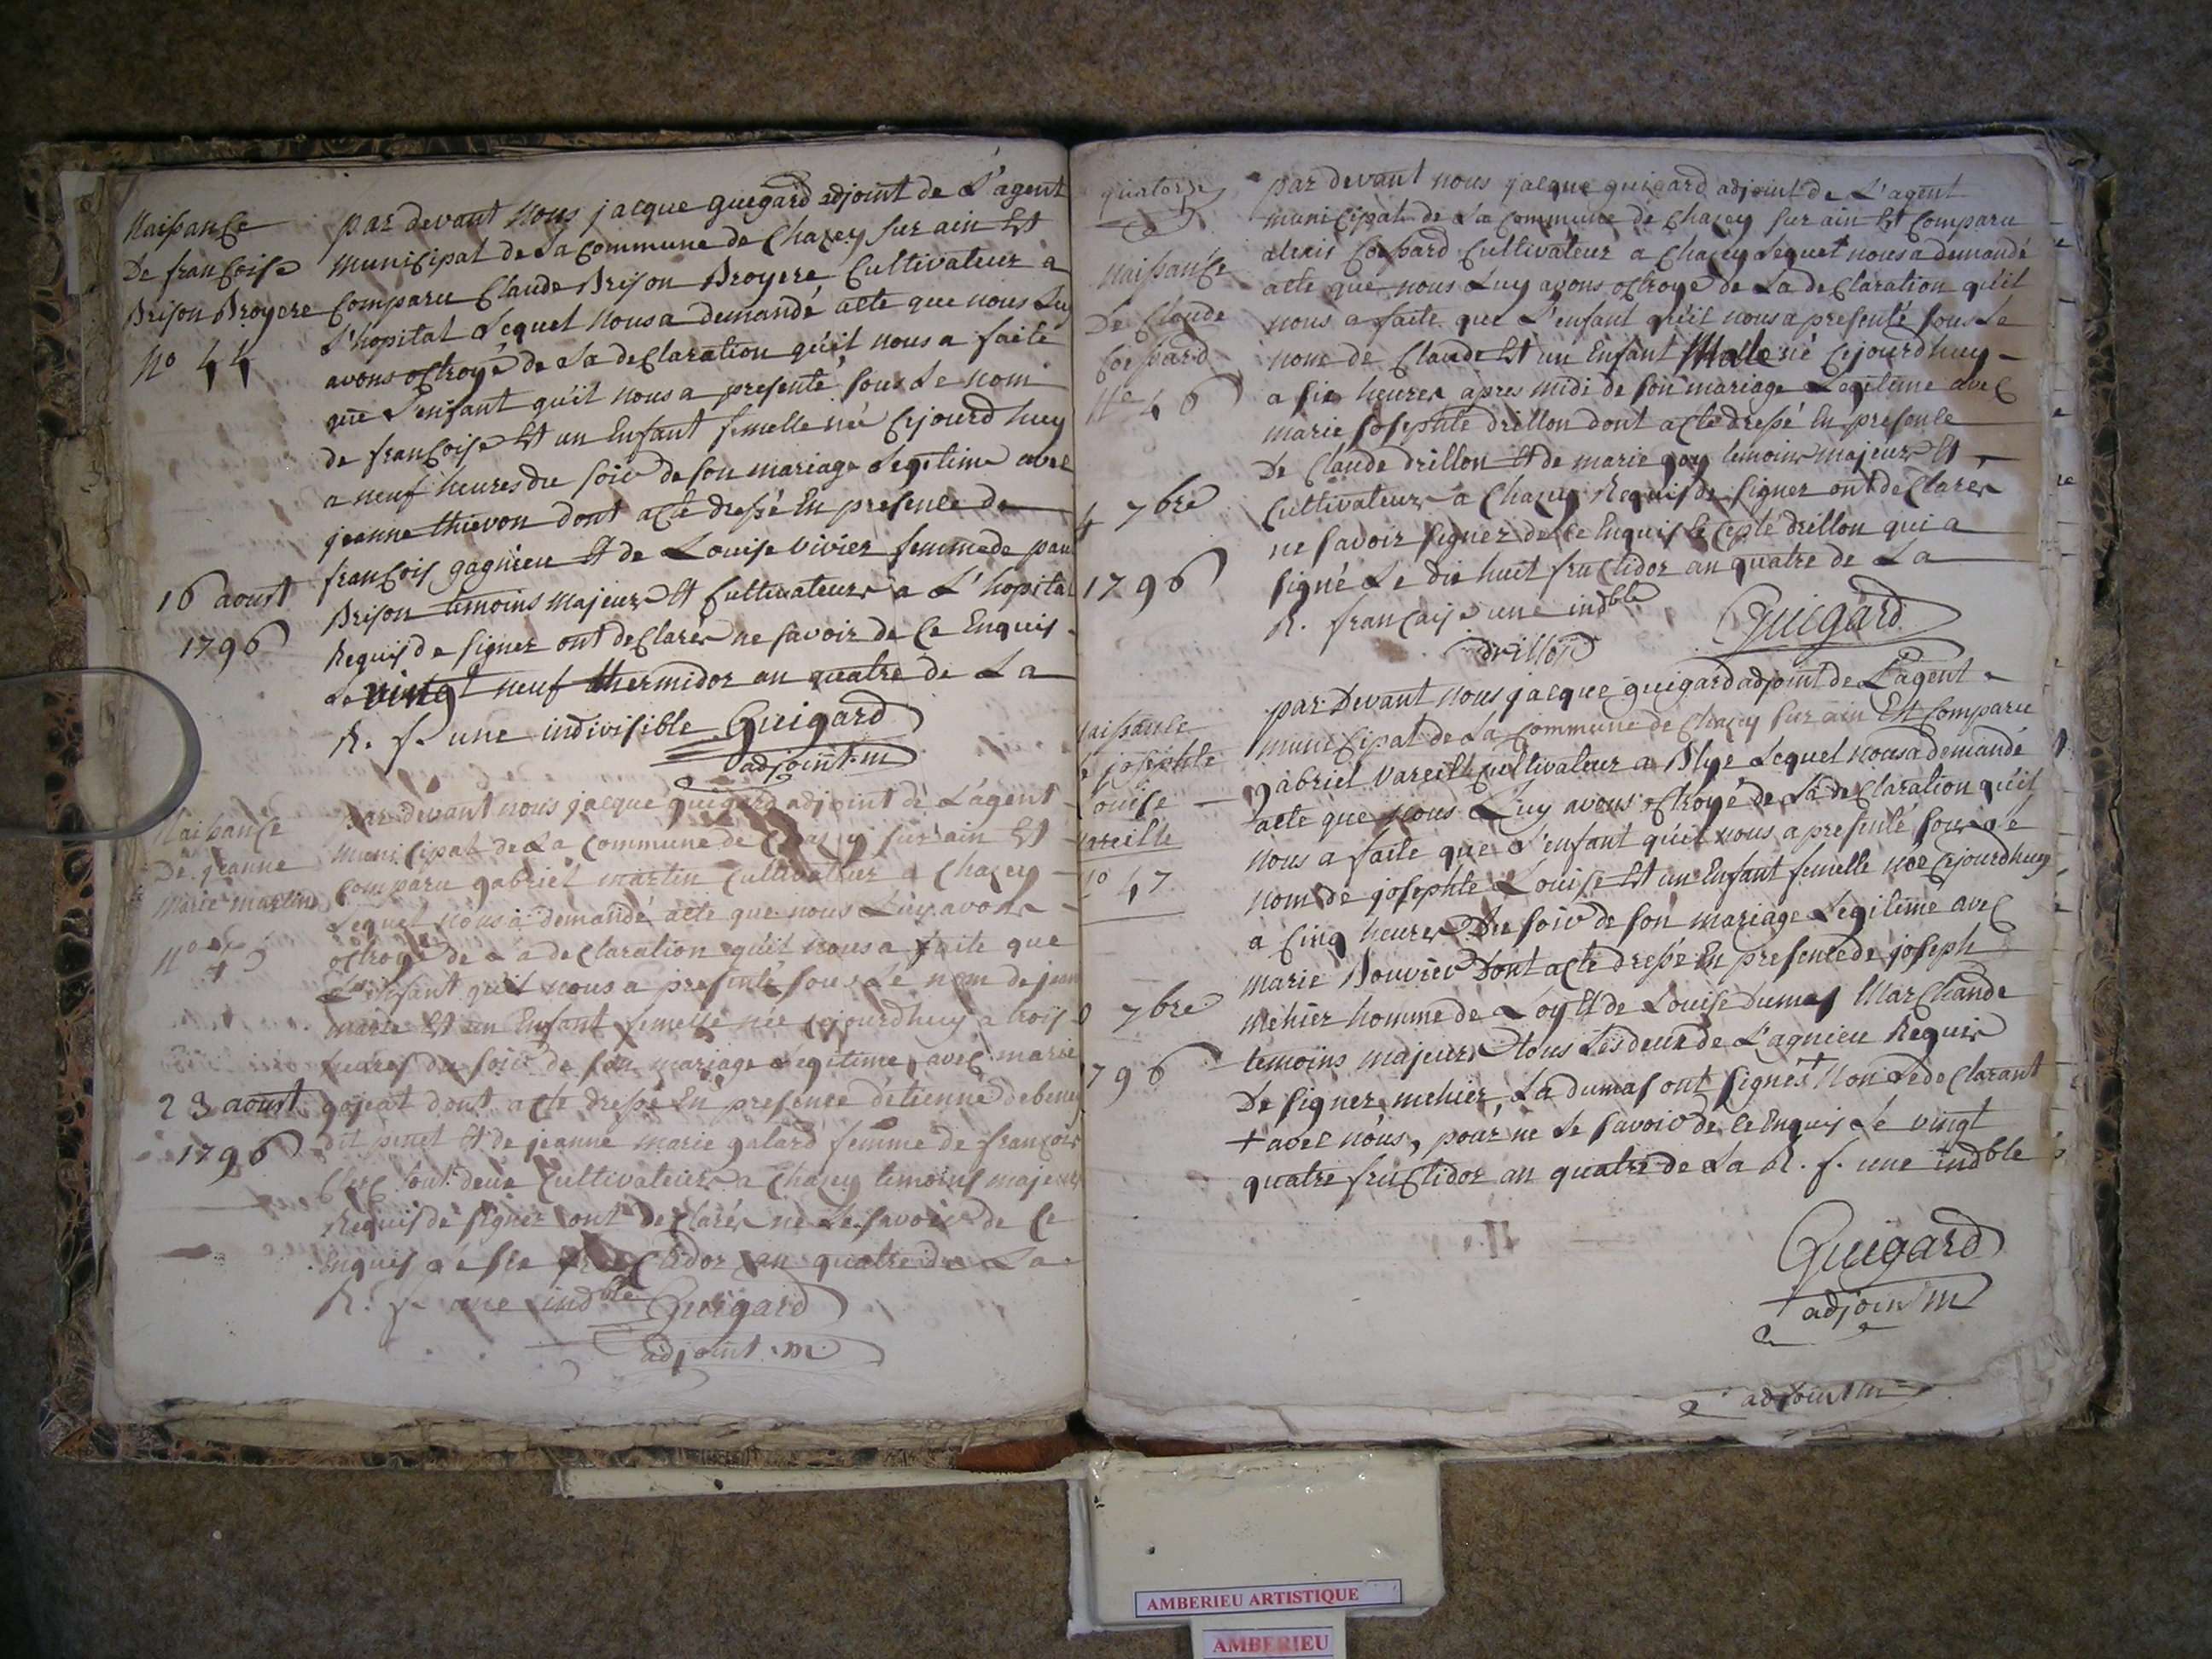 Naissance
De françoise
Brison Broyere
No 44
16 aoust
1796
par devant nous jacque guigard adjoint de L'agent
municipal de La commune de chazey sur ain Est
comparu Claude Brison Broyere Cultivateur a
L'hopital Lequel nous a demandé acte que nous Luy
avons octroyé de La declaration qu'il nous a faite
que L'enfant qu'il nous a presenté sous Le nom
de françoise Est un Enfant femelle née Cejourd huy
a neuf heures du soir de son mariage Legitime avec
jeanne thievon dont acte dressé En presence de
françois gagnieu Et de Louise vivier femme de paul
Brison temoins majeurs Et Cultivateurs a L'hopital
Requis de signer ont declarés ne savoir de Ce Enquis
Le vingt neuf thermidor an quatre de La
R. f. une indivisible Guigard
adjoint m
Naissance
De jeanne
marie martin
No 45
23 aoust
1796
par devant nous jacque guigard adjoint de L'agent
municipal de La commune de chazey sur ain Est
comparu gabriel martin Cultivateur a chazey
Lequel nous a demandé acte que nous Luy avons
octroyé de La declaration qu'il nous a faite que
L'enfant qu'il nous a presenté sous Le nom de jean
marie Est un Enfant femelle née cejourdhuy a trois
heures du soir de son mariage Legitime avec marie
gojeat dont acte dressé En presence d'etienne debeney
dit pinet Et de jeanne marie galard femme de françois
tout deux Cultivateurs a Chazey temoins majeurs
Requis de signer ont declarés ne Le savoir de Ce
Enquis Le six fructidor an quatre de La
R. f. une indble Guigard
adjoint m
quatorze
Naissance
De Claude
Coessard
No 46
4 7bre
1796
par devant nous jacque guigard adjoint de L'agent
municipal de La commune de chazey sur ain Est comparu
alexis Coessard Cultivateur a chazey Lequel nous a demandé
acte que nous Luy avons octroyé de La declaration qu'il
nous a faite que L'enfant qu'il nous a presenté sous Le
nom de Claude Est un Enfant Malle né Cejourdhuy
a six heures apres midi de son mariage Legitime avec
marie josephte drillon dont acte dressé En presence
De Claude drillon Et de marie goy temoins majeurs Et
Cultivateurs a Chazey Requis de signer ont declarés
ne savoir signer de Ce Enquis Excepte drillon qui a
signé Le dix huit fructidor an quatre de La
R. française une indble
drillon Guigard
Naissance
josephte
Louise
Vareille
No 47
7bre
1796
par Devant nous jacque guigard adjoint de L'agent
municipal de La commune de chazey sur ain Est comparu
gabriel Vareille Cultivateur a Blye Lequel nous a demandé
acte que nous Luy avons octroyé de La declaration qu'il
nous a faite que L'enfant qu'il nous a presenté sous Le
nom de josephte Louise Est un Enfant femelle née Cejourdhuy
a Cinq heures Du soir de son mariage Legitime avec
marie Bouvier Dont acte dressé En presence de joseph
mehier homme de Loy Et de Louise Dumas Marchande
temoins majeurs tous Les deux de Lagnieu Requis
De signer mehier, La dumas ont signés + non Le declarant
+ avec nous, pour ne Le savoir de Ce Enquis Le vingt
quatre fructidor an quatre de La R. f. une indble
Guigard
adjoint m
adjoint m
AMBERIEU ARTISTIQUE
AMBERIEU